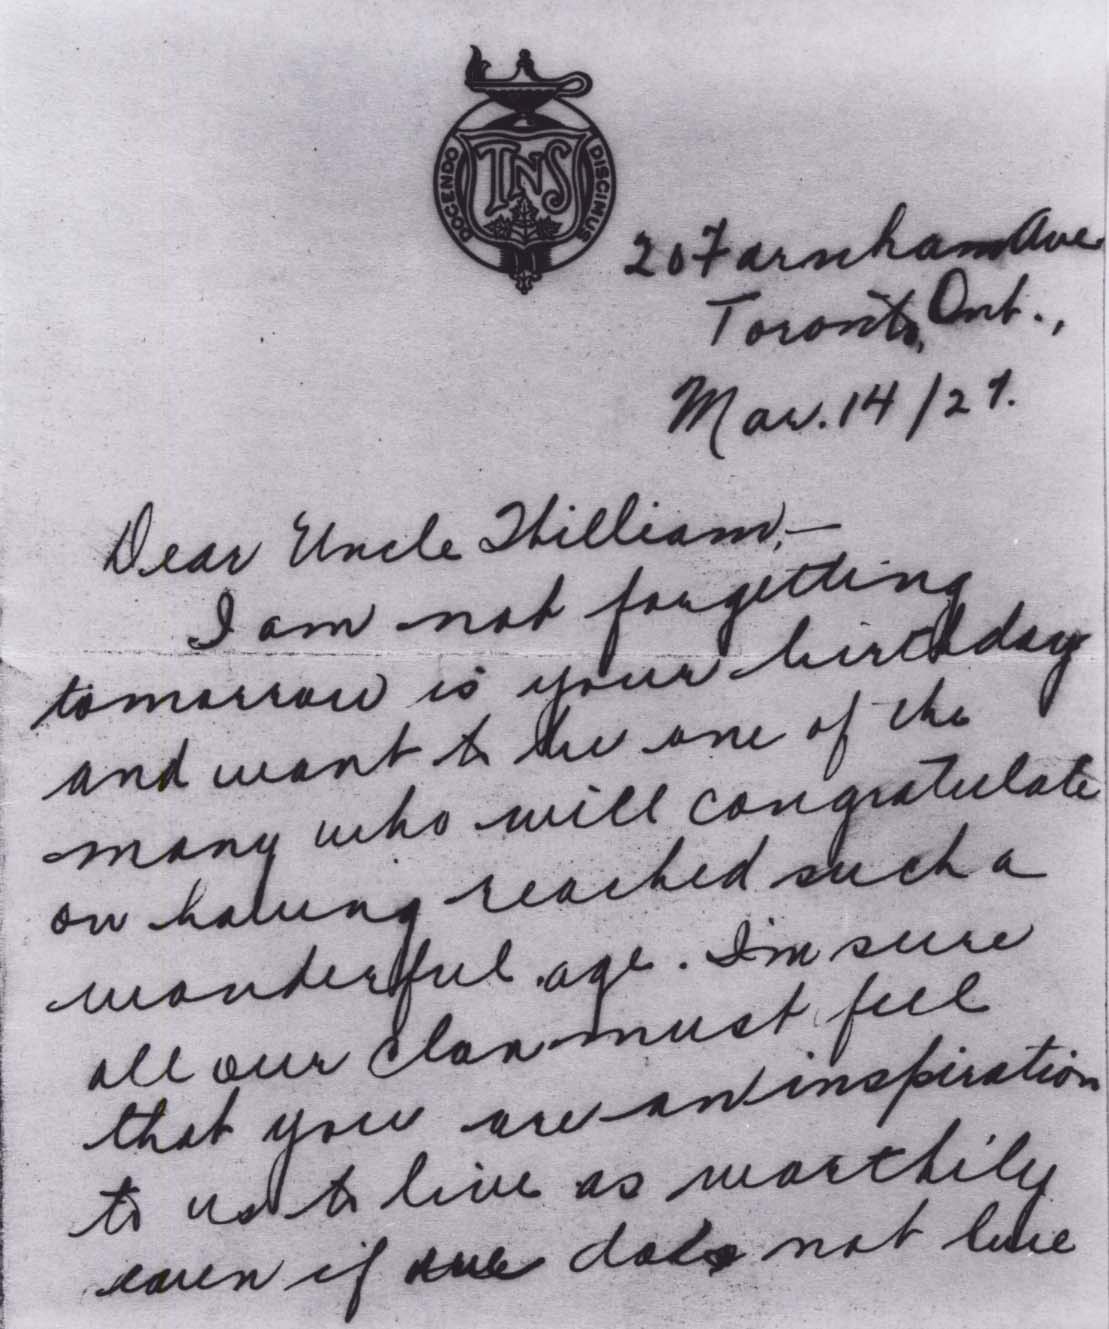 DOCENDO DISCIMUS
TNS
20 Farnham Ave
Toronto, Ont.,
Mar. 14/27.
Dear Uncle William,—
I am not forgetting
tomorrow is your birthday
and want to be one of the
many who will congratulate
on having reached such a
wonderful age. I'm sure
all our clan must feel
that you are an inspiration
to us to live as worthily
even if one does not live